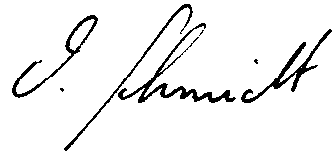 J. Schmidt